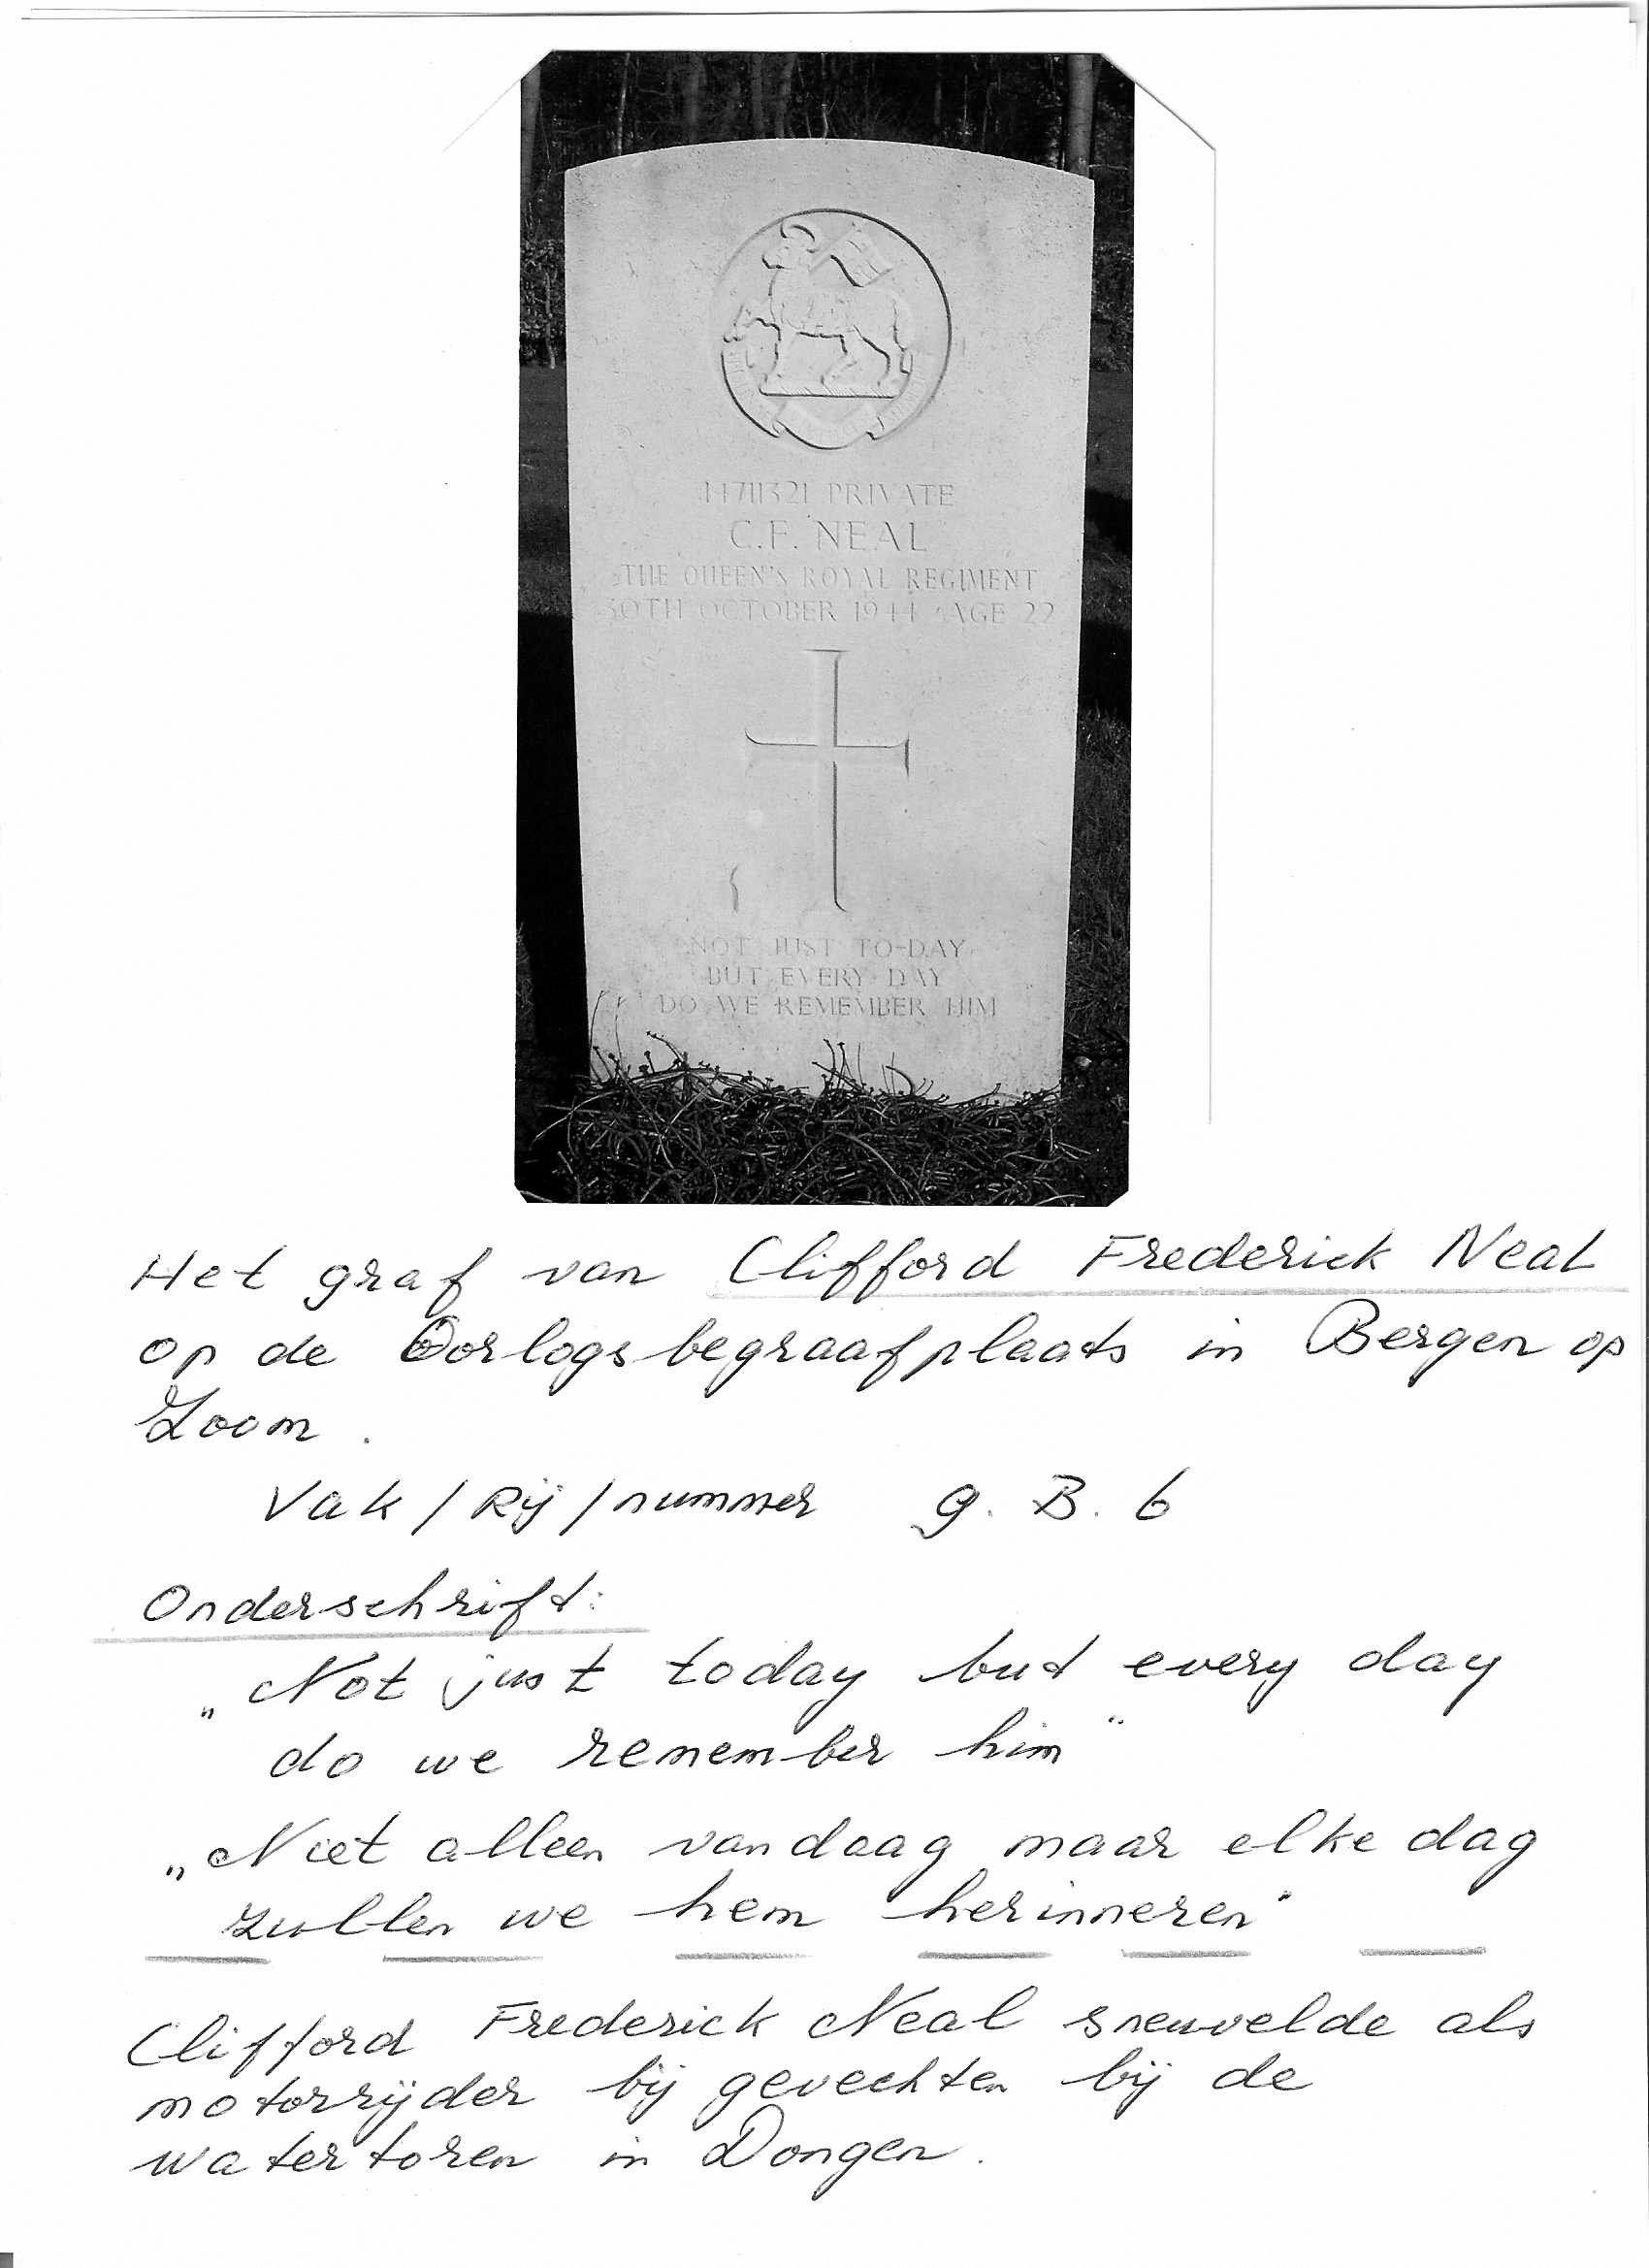 14711321 PRIVATE
C.F. NEAL
THE QUEEN'S ROYAL REGIMENT
30TH OCTOBER 1944 AGE 22
NOT JUST TO-DAY
BUT EVERY DAY
DO WE REMEMBER HIM
Het graf van Clifford Frederick Neal
op de Oorlogsbegraafplaats in Bergen op
Zoom.
Vak / Rij / nummer 9. B. 6
Onderschrift:
„Not just today but every day
do we remember him"
„Niet alleen vandaag maar elke dag
zullen we hem herinneren"
Clifford Frederick Neal sneuvelde als
motorrijder bij gevechten bij de
watertoren in Dongen.